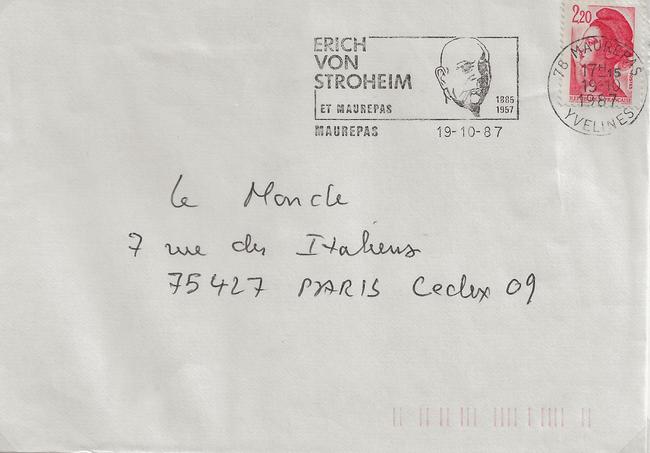 ERICH
VON
STROHEIM
ET MAUREPAS
1885
1957
MAUREPAS 19-10-87
2,20
78 MAUREPAS
17H15
19-10
1987
YVELINES
Le Monde
7 rue des Italiens
75427 PARIS Cedex 09